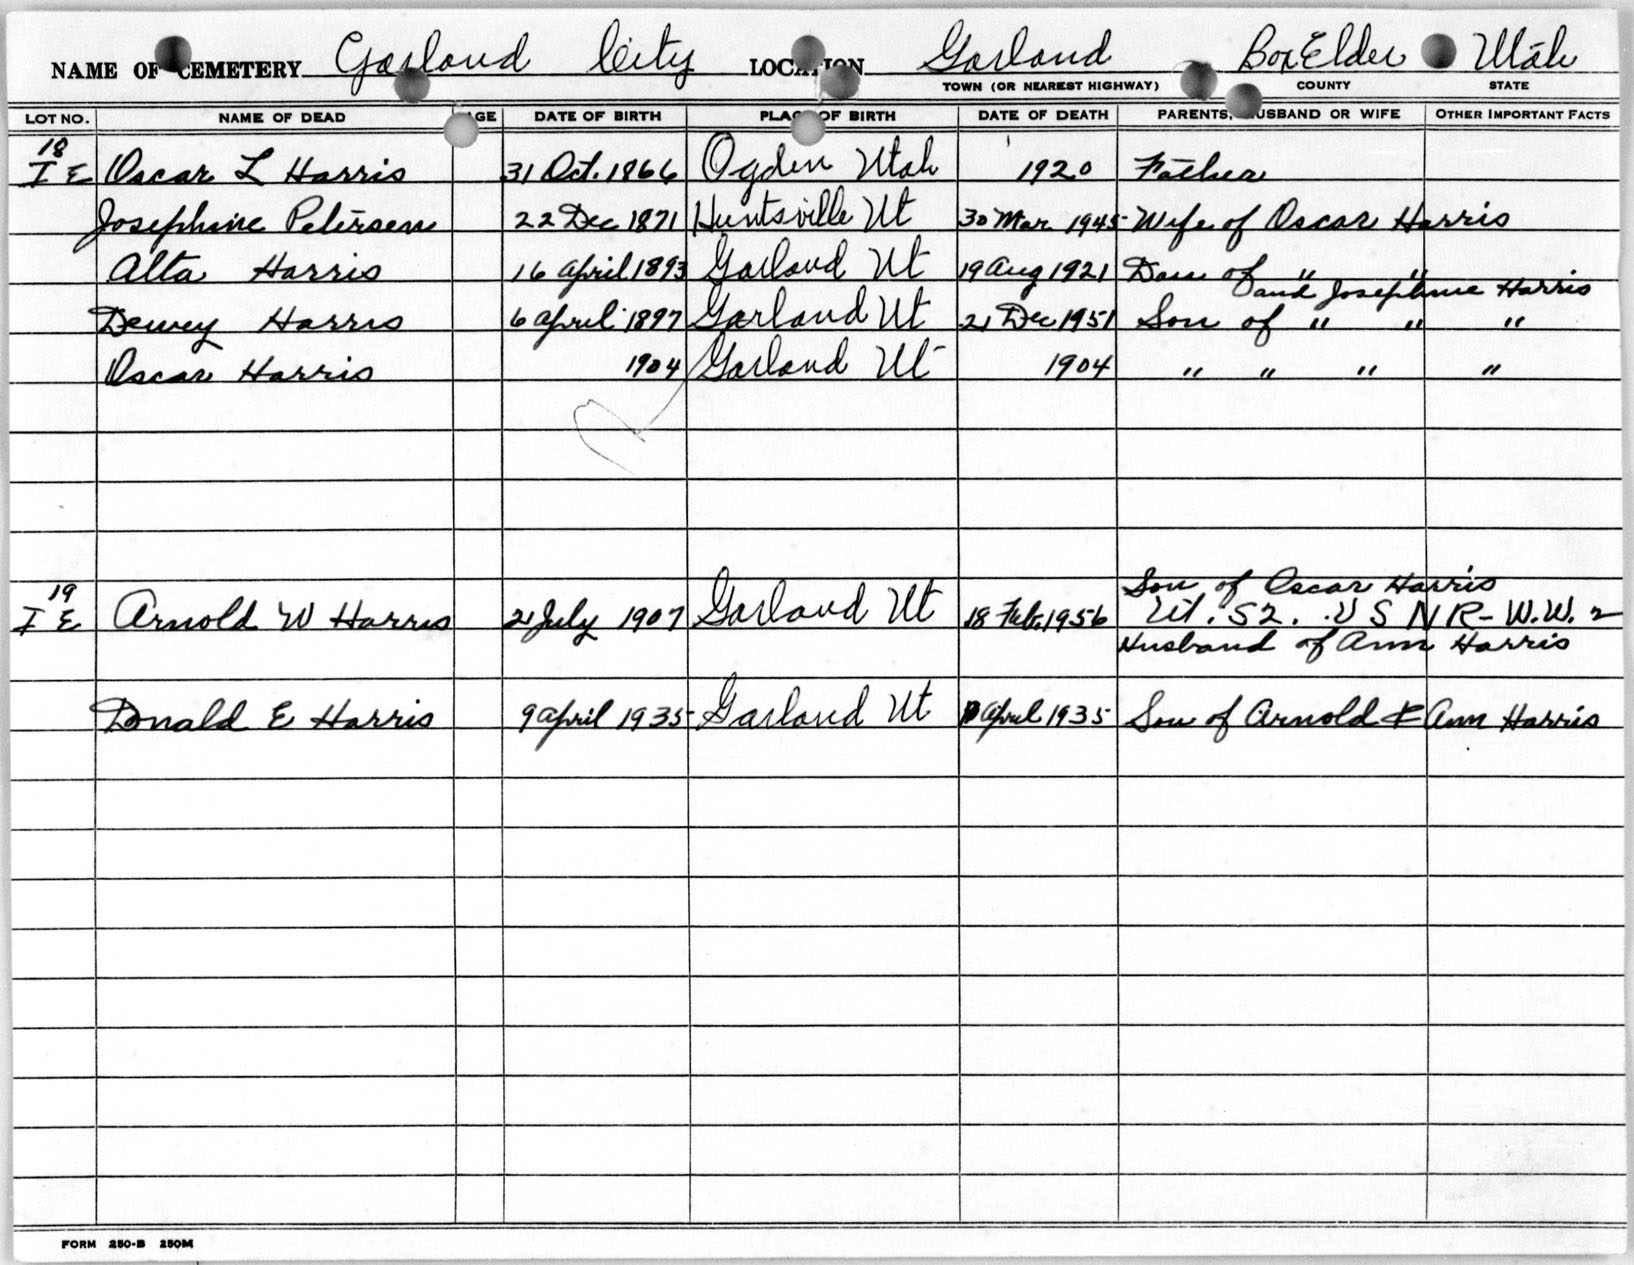 NAME OF CEMETERY Garland City LOCATION Garland Box Elder Utah
TOWN (OR NEAREST HIGHWAY) COUNTY STATE
LOT NO. NAME OF DEAD AGE DATE OF BIRTH PLACE OF BIRTH DATE OF DEATH PARENTS, HUSBAND OR WIFE OTHER IMPORTANT FACTS
18
I E Oscar L Harris 31 Oct. 1866 Ogden Utah 1920 Father
Josephine Petersen 22 Dec 1871 Huntsville Ut 30 Mar 1945 Wife of Oscar Harris
Alta Harris 16 April 1893 Garland Ut 19 Aug 1921 Dau of " "
and Josephine Harris
Dewey Harris 6 April 1897 Garland Ut 21 Dec 1951 Son of " " "
Oscar Harris 1904 Garland Ut 1904 " " " "
Son of Oscar Harris
19
I E Arnold W Harris 21 July 1907 Garland Ut 18 Feb. 1956 Ut. S2. U S N R - W.W. 2
Husband of Ann Harris
Donald E Harris 9 April 1935 Garland Ut April 1935 Son of Arnold & Ann Harris
FORM 250-B 250M